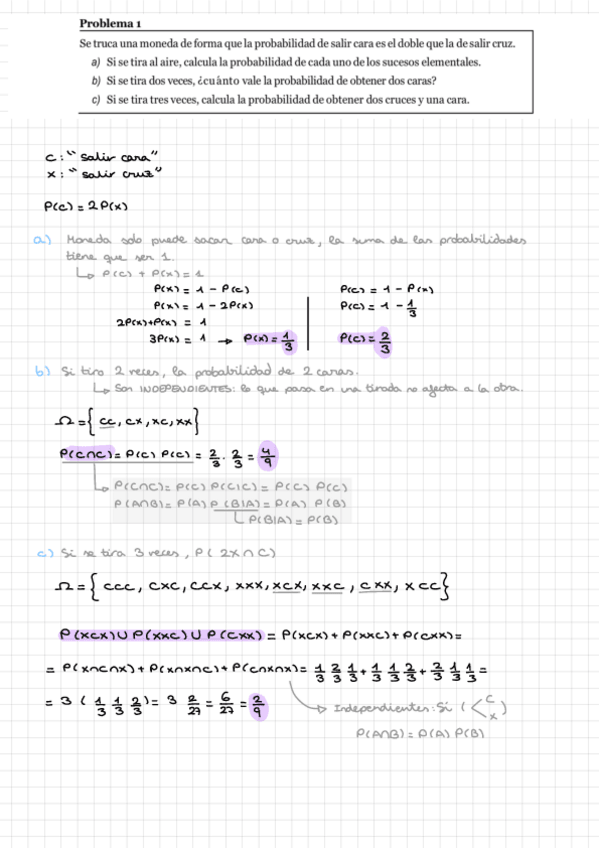 Problema 1
Se truca una moneda de forma que la probabilidad de salir cara es el doble que la de salir cruz.
a) Si se tira al aire, calcula la probabilidad de cada uno de los sucesos elementales.
b) Si se tira dos veces, ¿cuánto vale la probabilidad de obtener dos caras?
c) Si se tira tres veces, calcula la probabilidad de obtener dos cruces y una cara.
C: "salir cara"
X: "salir cruz"
P(C) = 2P(X)
a) Moneda solo puede sacar cara o cruz, la suma de las probabilidades
tiene que ser 1.
↳ P(C) + P(X) = 1
P(X) = 1 - P(C)
P(X) = 1 - 2P(X)
2P(X)+P(X) = 1
3P(X) = 1 → P(X) = 1/3
P(C) = 1 - P(X)
P(C) = 1 - 1/3
P(C) = 2/3
b) Si tiro 2 veces, la probabilidad de 2 caras.
↳ Son INDEPENDIENTES: lo que pasa en una tirada no afecta a la otra.
Ω = {CC, CX, XC, XX}
P(C∩C) = P(C) P(C) = 2/3 · 2/3 = 4/9
↳ P(C∩C) = P(C) P(C|C) = P(C) P(C)
P(A∩B) = P(A) P(B|A) = P(A) P(B)
↳ P(B|A) = P(B)
c) Si se tira 3 veces, P(2X∩C)
Ω = {CCC, CXC, CCX, XXX, XCX, XXC, CXX, XCC}
P(XCX) ∪ P(XXC) ∪ P(CXX) = P(XCX) + P(XXC) + P(CXX) =
= P(X∩C∩X) + P(X∩X∩C) + P(C∩X∩X) = 1/3 2/3 1/3 + 1/3 1/3 2/3 + 2/3 1/3 1/3 =
= 3 (1/3 1/3 2/3) = 3 2/27 = 6/27 = 2/9
→ Independientes: Si ( < C X )
P(A∩B) = P(A) P(B)